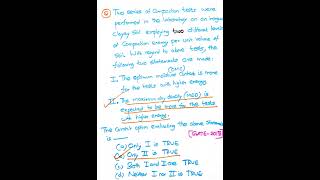 ⑥ Two series of Compaction tests were
performed in the laboratory on an inorganic
clayey soil employing two different levels
of Compaction energy per unit volume of
soil. With regard to above tests, the
following two statements are made:
(OMC)
I. The optimum moisture Content is more
for the tests with higher energy.
II. The maximum dry density (MDD) is
expected to be more for the tests
with higher energy.
The Correct option evaluating the above statements
is ______ [GATE-
(a) Only I is TRUE
(b) Only II is TRUE
(c) Both I and II are TRUE
(d) Neither I nor II is TRUE